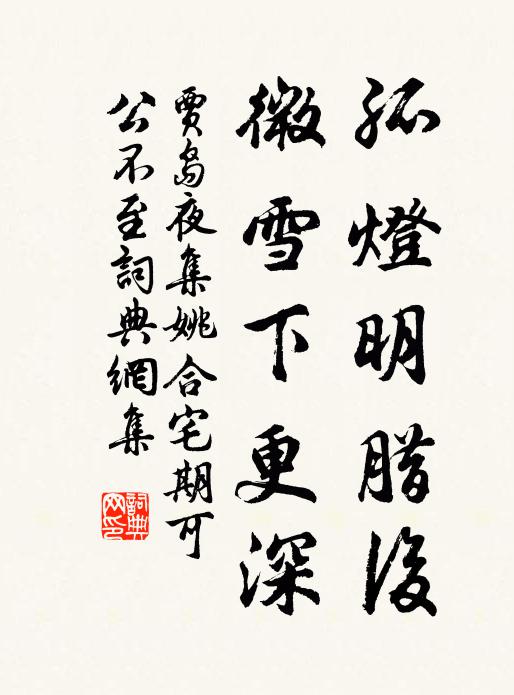 孤燈明腊後
微雪下更深
賈島夜集姚合宅期可
公不至詞典網集
詞典
网印